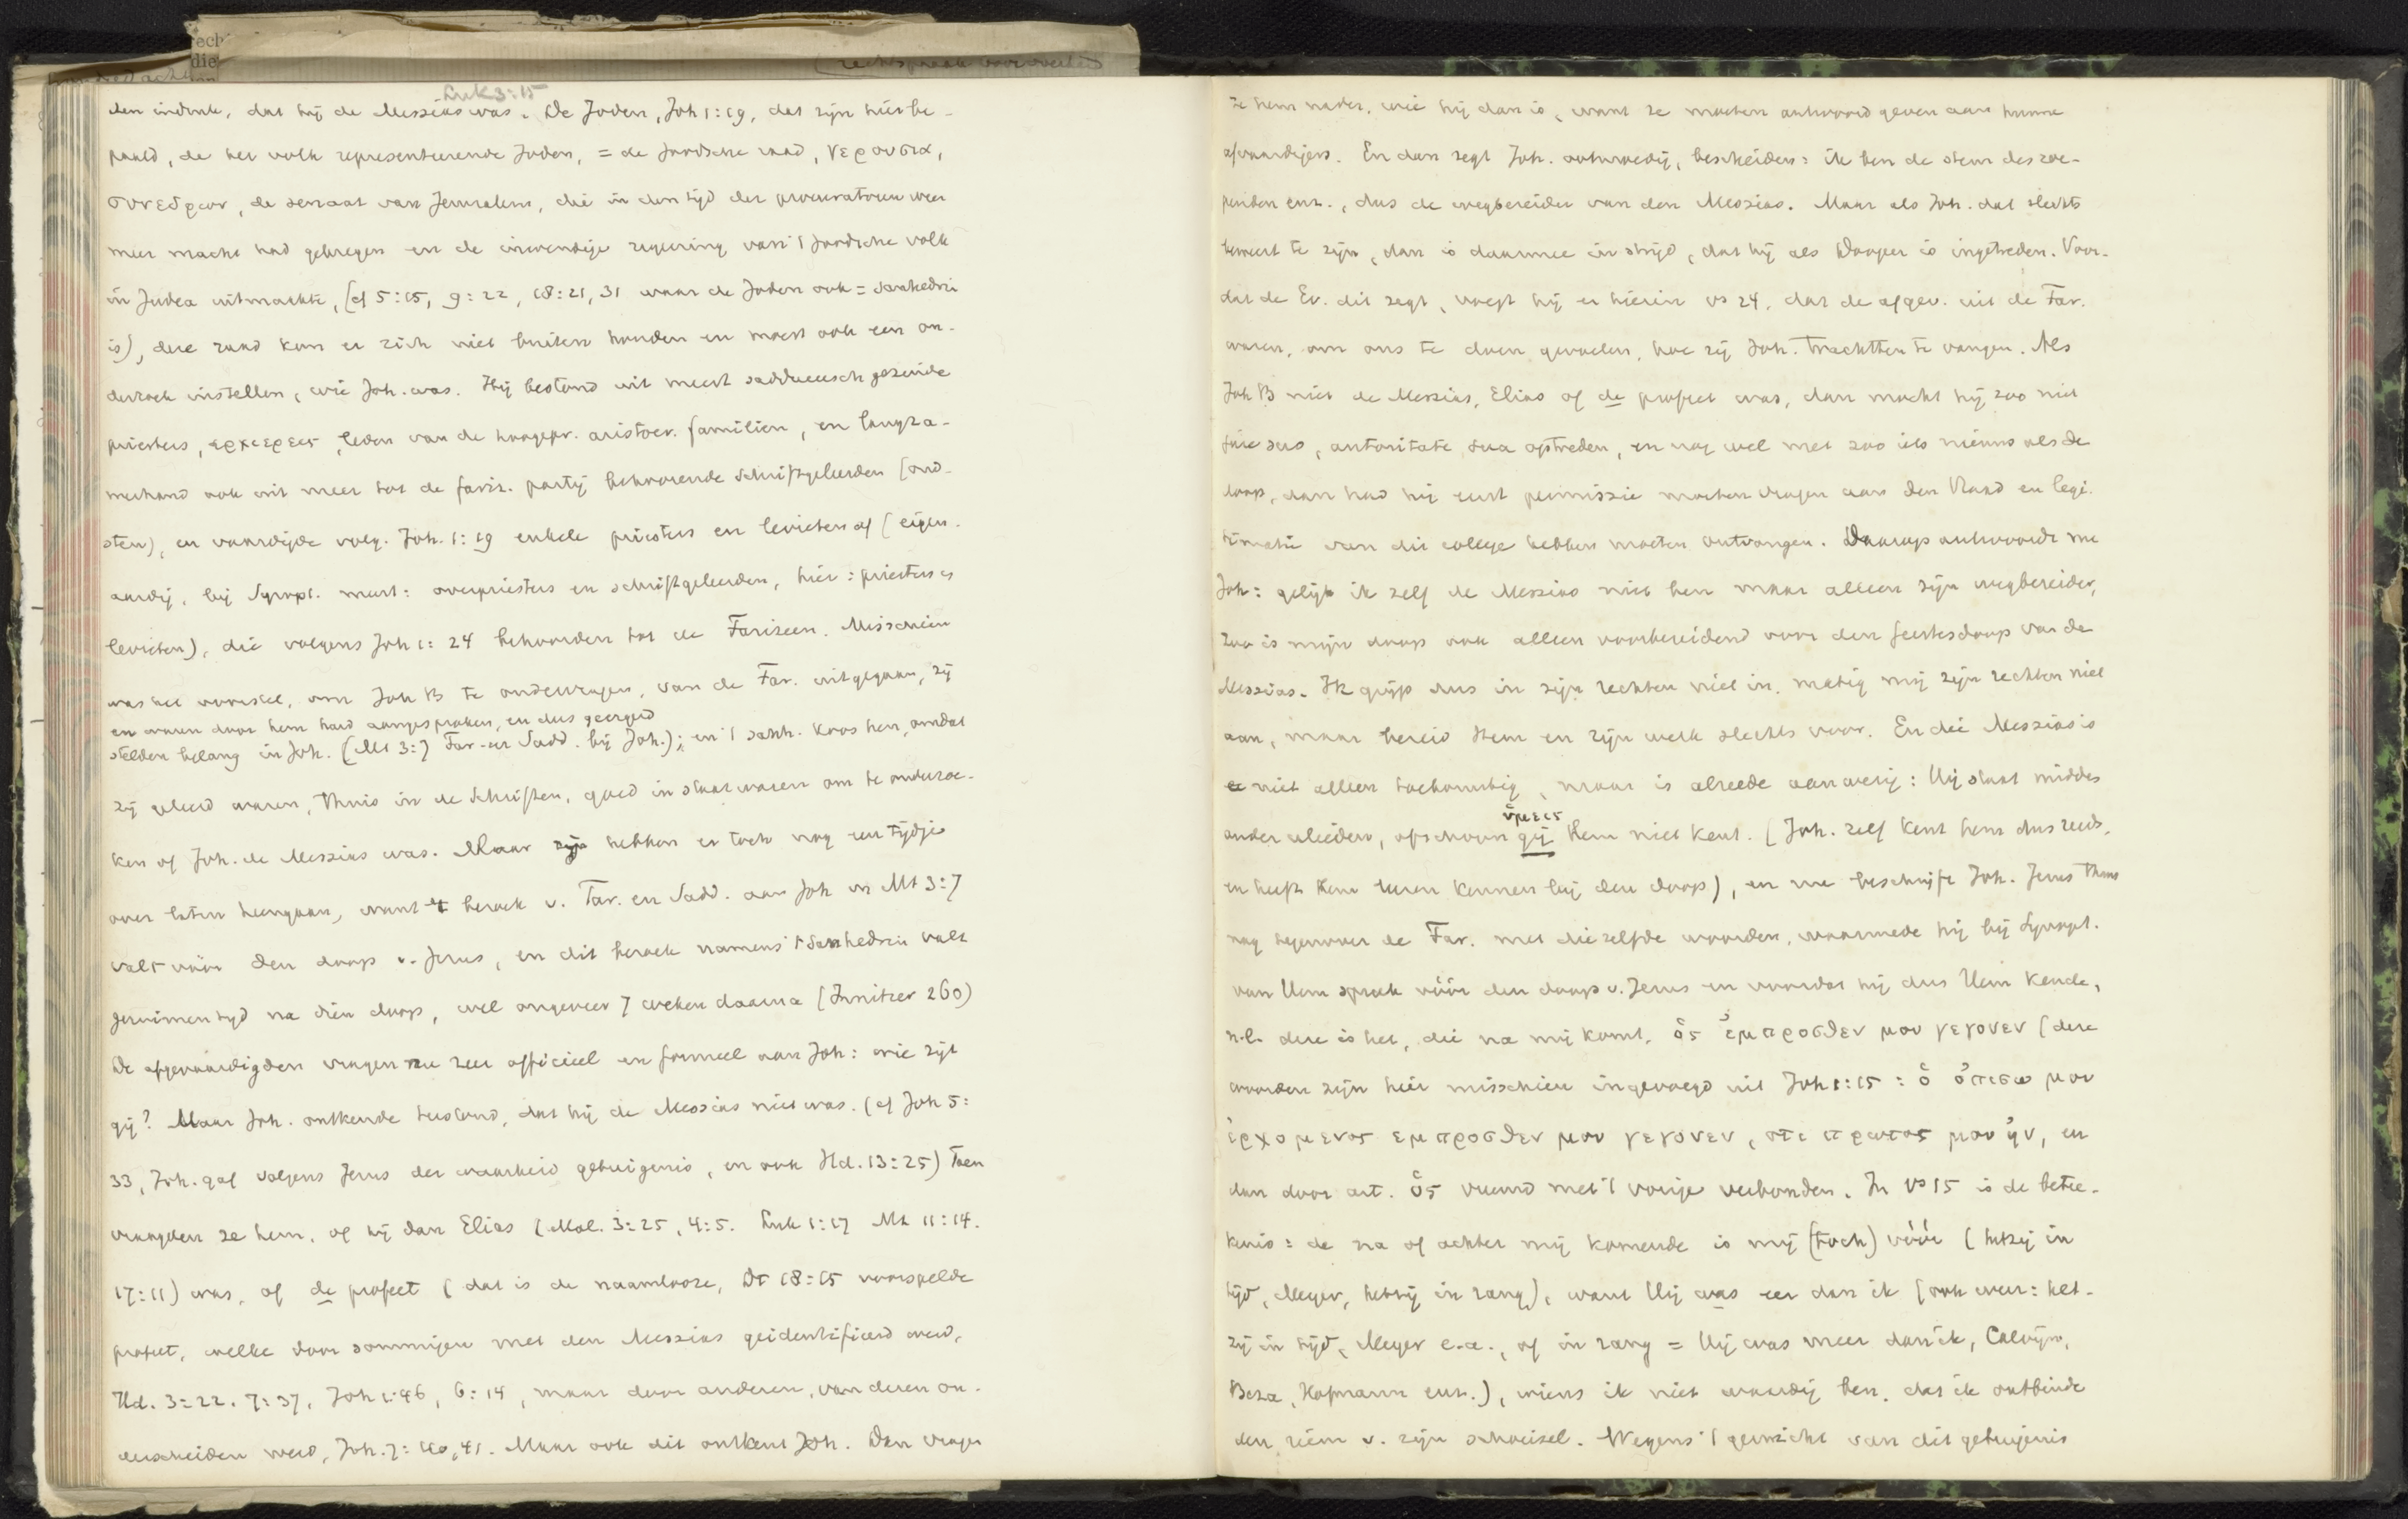 Luk 3:15
den indruk, dat hij de Messias was. De Joden, Joh 1:19, dat zijn hier be-
paald, de het volk representeerende Joden, = de Joodsche raad, γερουσια,
συνεδριον, de senaat van Jeruzalem, die in den tijd der procuratoren weer
meer macht had gekregen en de inwendige regeering van 't Joodsche volk
in Judea uitmaakte, (cf 5:15, 9:22, 18:21, 31 waar de Joden ook = sanhedrin
is), deze raad kon er zich niet buiten houden en moest ook een on-
derzoek instellen, wie Joh. was. Hij bestond uit meest sadduceesch gezinde
priesters, αρχιερεις, leden van de hoogepr. aristocr. familien, en langza-
merhand ook uit meer tot de fariz. partij behoorende schriftgeleerden (oud-
sten), en vaardigde volg. Joh. 1:19 enkele priesters en levieten af (eigen-
aardig, bij Synopt. meest: overpriesters en schriftgeleerden, hier: priesters en
levieten), die volgens Joh 1:24 behoorden tot de Farizeen. Misschien
was het voorstel, om Joh B te ondervragen, van de Far. uitgegaan, zij
en waren door hem hard aangesproken, en dus geergerd
stelden belang in Joh. (Mt 3:7 Far. en Sadd. bij Joh.); en 't sanh. koos hen, omdat
zij geleerd waren, thuis in de Schriften, goed in staat waren om te onderzoe-
ken of Joh. de Messias was. Maar zij hebben er toch nog een tijdje
over laten heengaan, want 't bezoek v. Far. en Sadd. aan Joh in Mt 3:7
valt vóór den doop v. Jezus, en dit bezoek namens 't Sanhedrin valt
geruimen tijd na dien doop, wel ongeveer 7 weken daarna (Innitzer 260)
De afgevaardigden vragen nu zeer officieel en formeel aan Joh: wie zijt
gij? Maar Joh. ontkende beslist, dat hij de Messias niet was. (cf Joh 5:
33, Joh. gaf volgens Jezus der waarheid getuigenis, en ook Hd. 13:25) Toen
vraagden ze hem, of hij dan Elias (Mal. 3:25, 4:5. Luk 1:17 Mt 11:14.
17:11) was, of de profeet (dat is de naamlooze, Dt 18:15 voorspelde
profeet, welke door sommigen met den Messias geidentificeerd werd,
Hd. 3:22. 7:37, Joh 1:46, 6:14, maar door anderen, van dezen on-
derscheiden werd, Joh. 7:40, 41. Maar ook dit ontkent Joh. Dan vragen
ze hem nader, wie hij dan is, want ze moeten antwoord geven aan hunne
afvaardigers. En dan zegt Joh. ootmoedig, bescheiden: ik ben de stem des roe-
penden enz., dus de wegbereider van den Messias. Maar als Joh. dat slechts
beweert te zijn, dan is daarmee in strijd, dat hij als Dooper is ingetreden. Voor-
dat de Ev. dit zegt, voegt hij er hierin vs 24, dat de afgev. uit de Far.
waren, om ons te doen gevoelen, hoe zij Joh. trachtten te vangen. Als
Joh B niet de Messias, Elias of de profeet was, dan mocht hij zoo niet
jure suo, autoritate sua optreden, en nog wel met zoo iets nieuws als de
doop, dan had hij eerst permissie moeten vragen aan den Raad en legi-
timatie van dit college hebben moeten ontvangen. Daarop antwoordt nu
Joh: gelijk ik zelf de Messias niet ben maar alleen zijn wegbereider,
zoo is mijn doop ook alleen voorbereidend voor den Geestesdoop van de
Messias. Ik grijp dus in zijn rechten niet in, matig mij zijn rechten niet
aan, maar bereid Hem en zijn werk slechts voor. En die Messias is
niet alleen toekomstig, maar is alreede aanwezig: Hij staat midden
ὑμεις
onder ulieden, ofschoon gij Hem niet kent. (Joh. zelf kent hem dus reeds,
en heeft Hem leeren kennen bij den doop), en nu beschrijft Joh. Jezus thans
nog tegenover de Far. met diezelfde woorden, waarmede hij bij Synopt.
van Hem sprak vóór den doop v. Jezus en voordat hij dus Hem kende,
n.l. deze is het, die na mij komt, ὁς ἐμπροσθεν μου γεγονεν (deze
woorden zijn hier misschien ingevoegd uit Joh 1:15: ὁ ὀπισω μου
ἐρχομενος εμπροσθεν μου γεγονεν, οτι πρωτος μου ἠν, en
dan door art. ὁς vreemd met 't vorige verbonden. In vs 15 is de betee-
kenis: de na of achter mij komende is mij (toch) vóór (hetzij in
tijd, Meyer, hetzij in rang), want Hij was eer dan ik (ook weer: het-
zij in tijd, Meyer e.a., of in rang = Hij was meer dan ik, Calvijn,
Beza, Hofmann enz.), wiens ik niet waardig ben, dat ik ontbinde
den riem v. zijn schoeisel. Wegens 't gewicht van dit getuigenis